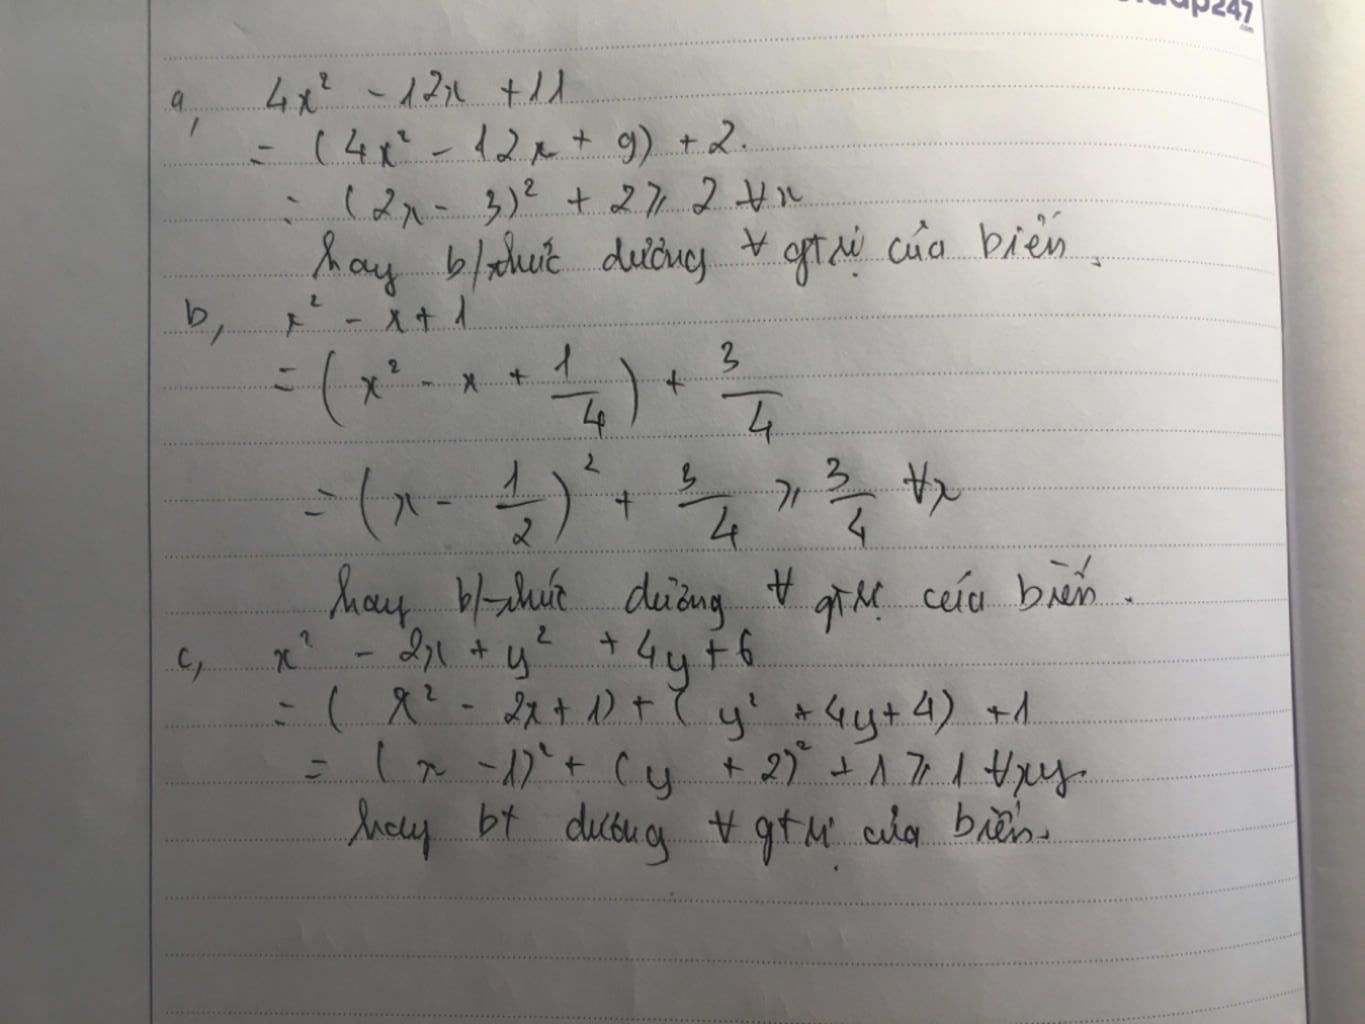 a, 4x² - 12x + 11
= (4x² - 12x + 9) + 2.
= (2x - 3)² + 2 ⩾ 2 ∀x
hay b/thức dương ∀ gtrị của biến.
b, x² - x + 1
= (x² - x + 1/4) + 3/4
= (x - 1/2)² + 3/4 ⩾ 3/4 ∀x
hay b/thức dương ∀ gtrị của biến.
c, x² - 2x + y² + 4y + 6
= (x² - 2x + 1) + (y² + 4y + 4) + 1
= (x - 1)² + (y + 2)² + 1 ⩾ 1 ∀xy.
hay bt dương ∀ gtrị của biến.